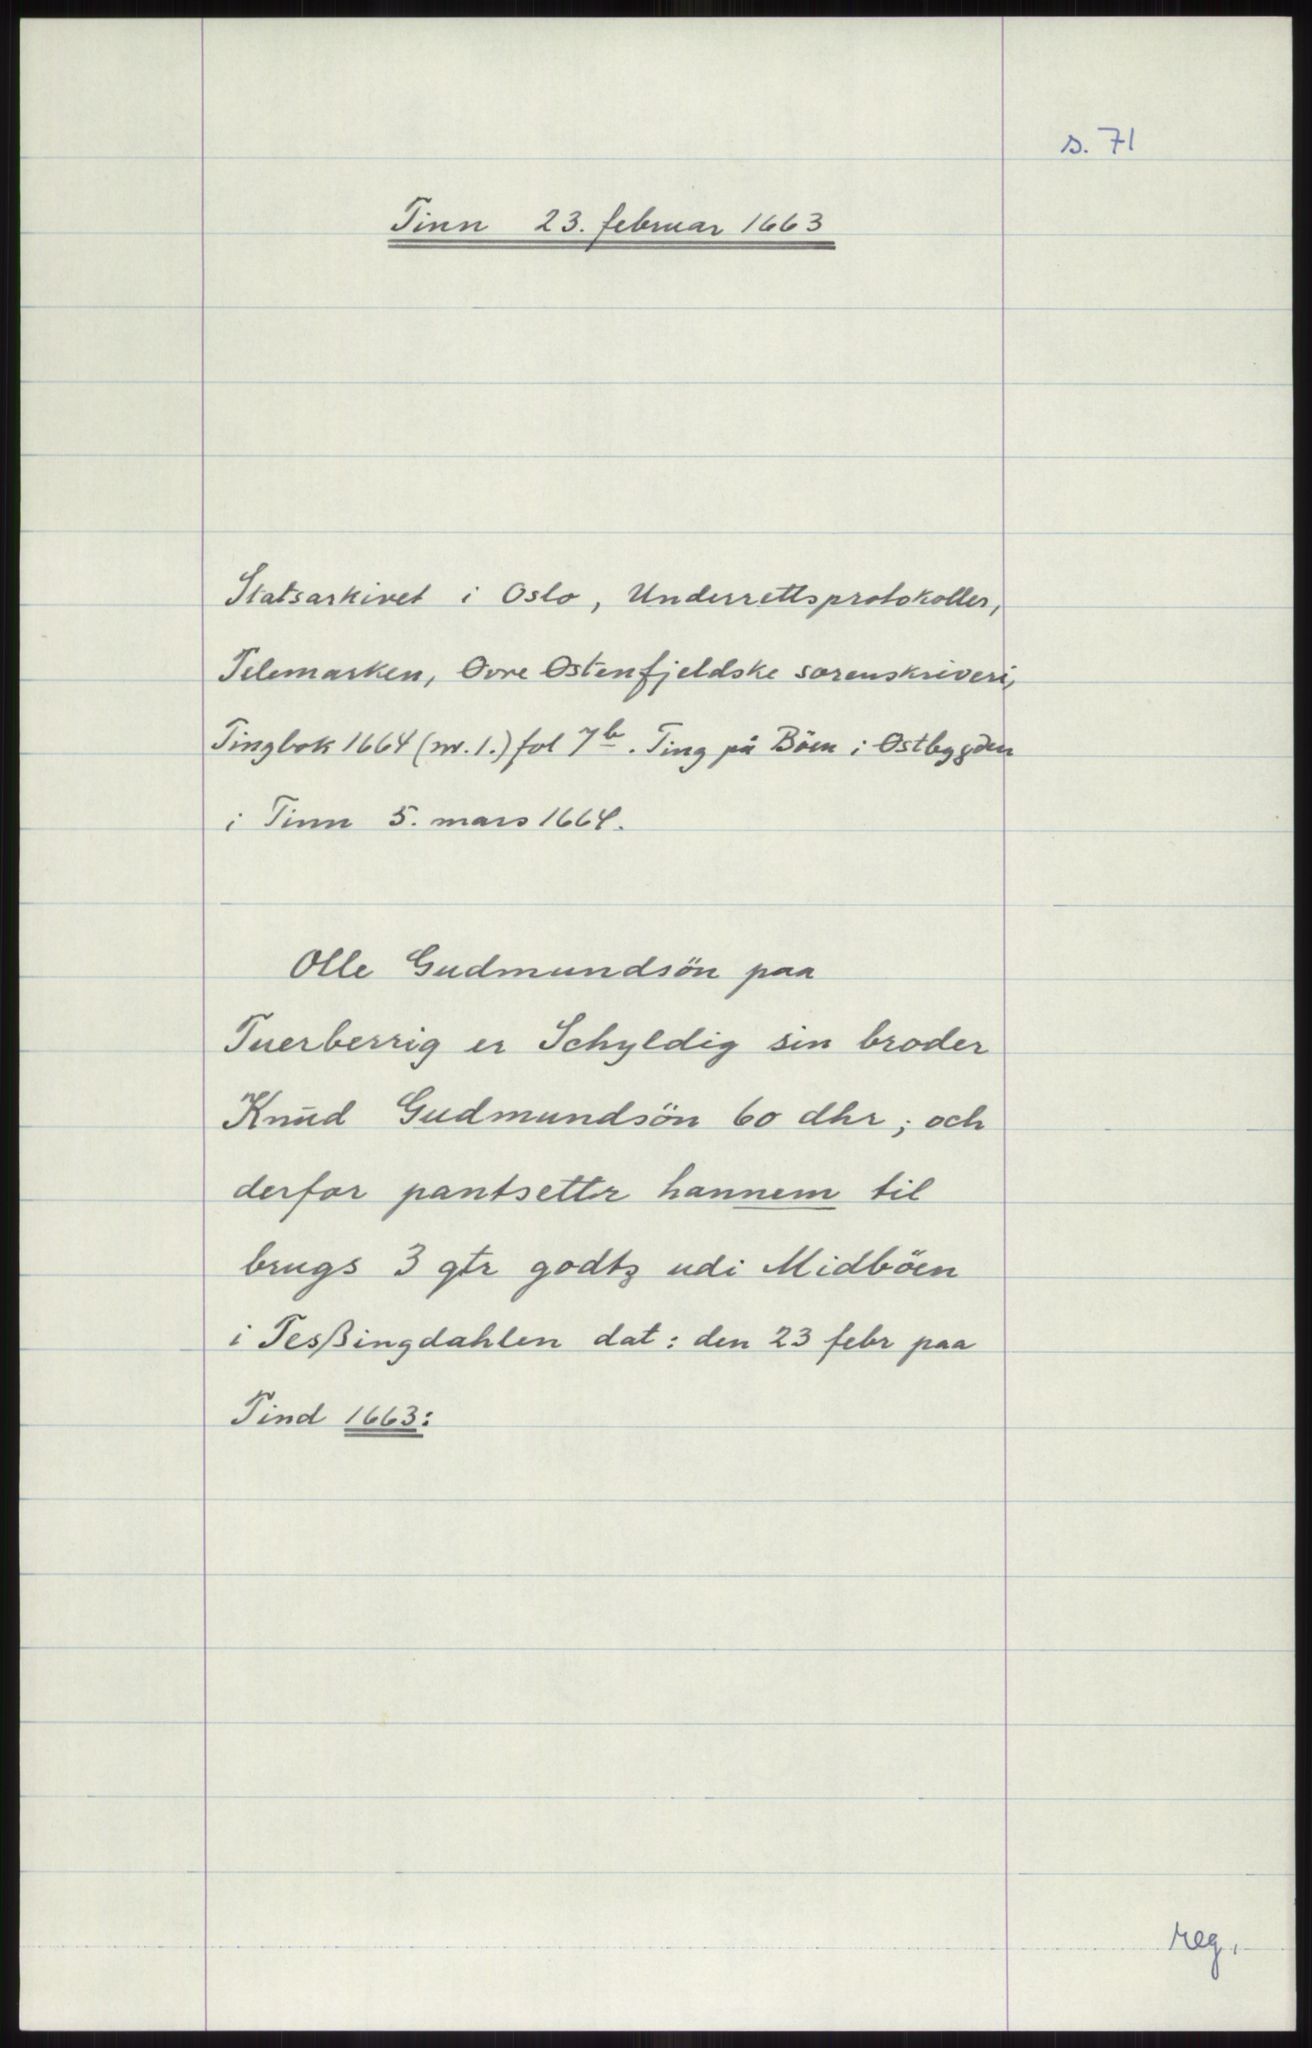 s. 71
Tinn 23. februar 1663
Statsarkivet i Oslo, Underrettsprotokoller,
Telemarken, Øvre Østenfjeldske sorenskriveri,
Tingbok 1664 (nr. 1.) fol 7b. Ting på Böen i Østbygden
i Tinn 5. mars 1664.
Olle Gudmundsön paa
Tuerberrig er Schyldig sin broder
Knud Gudmundsön 60 dhr; och
derfor pantsettr hannem til
brugs 3 gtr godtz udi Midböen
i Tesßingdahlen dat: den 23 febr paa
Tind 1663:
reg.